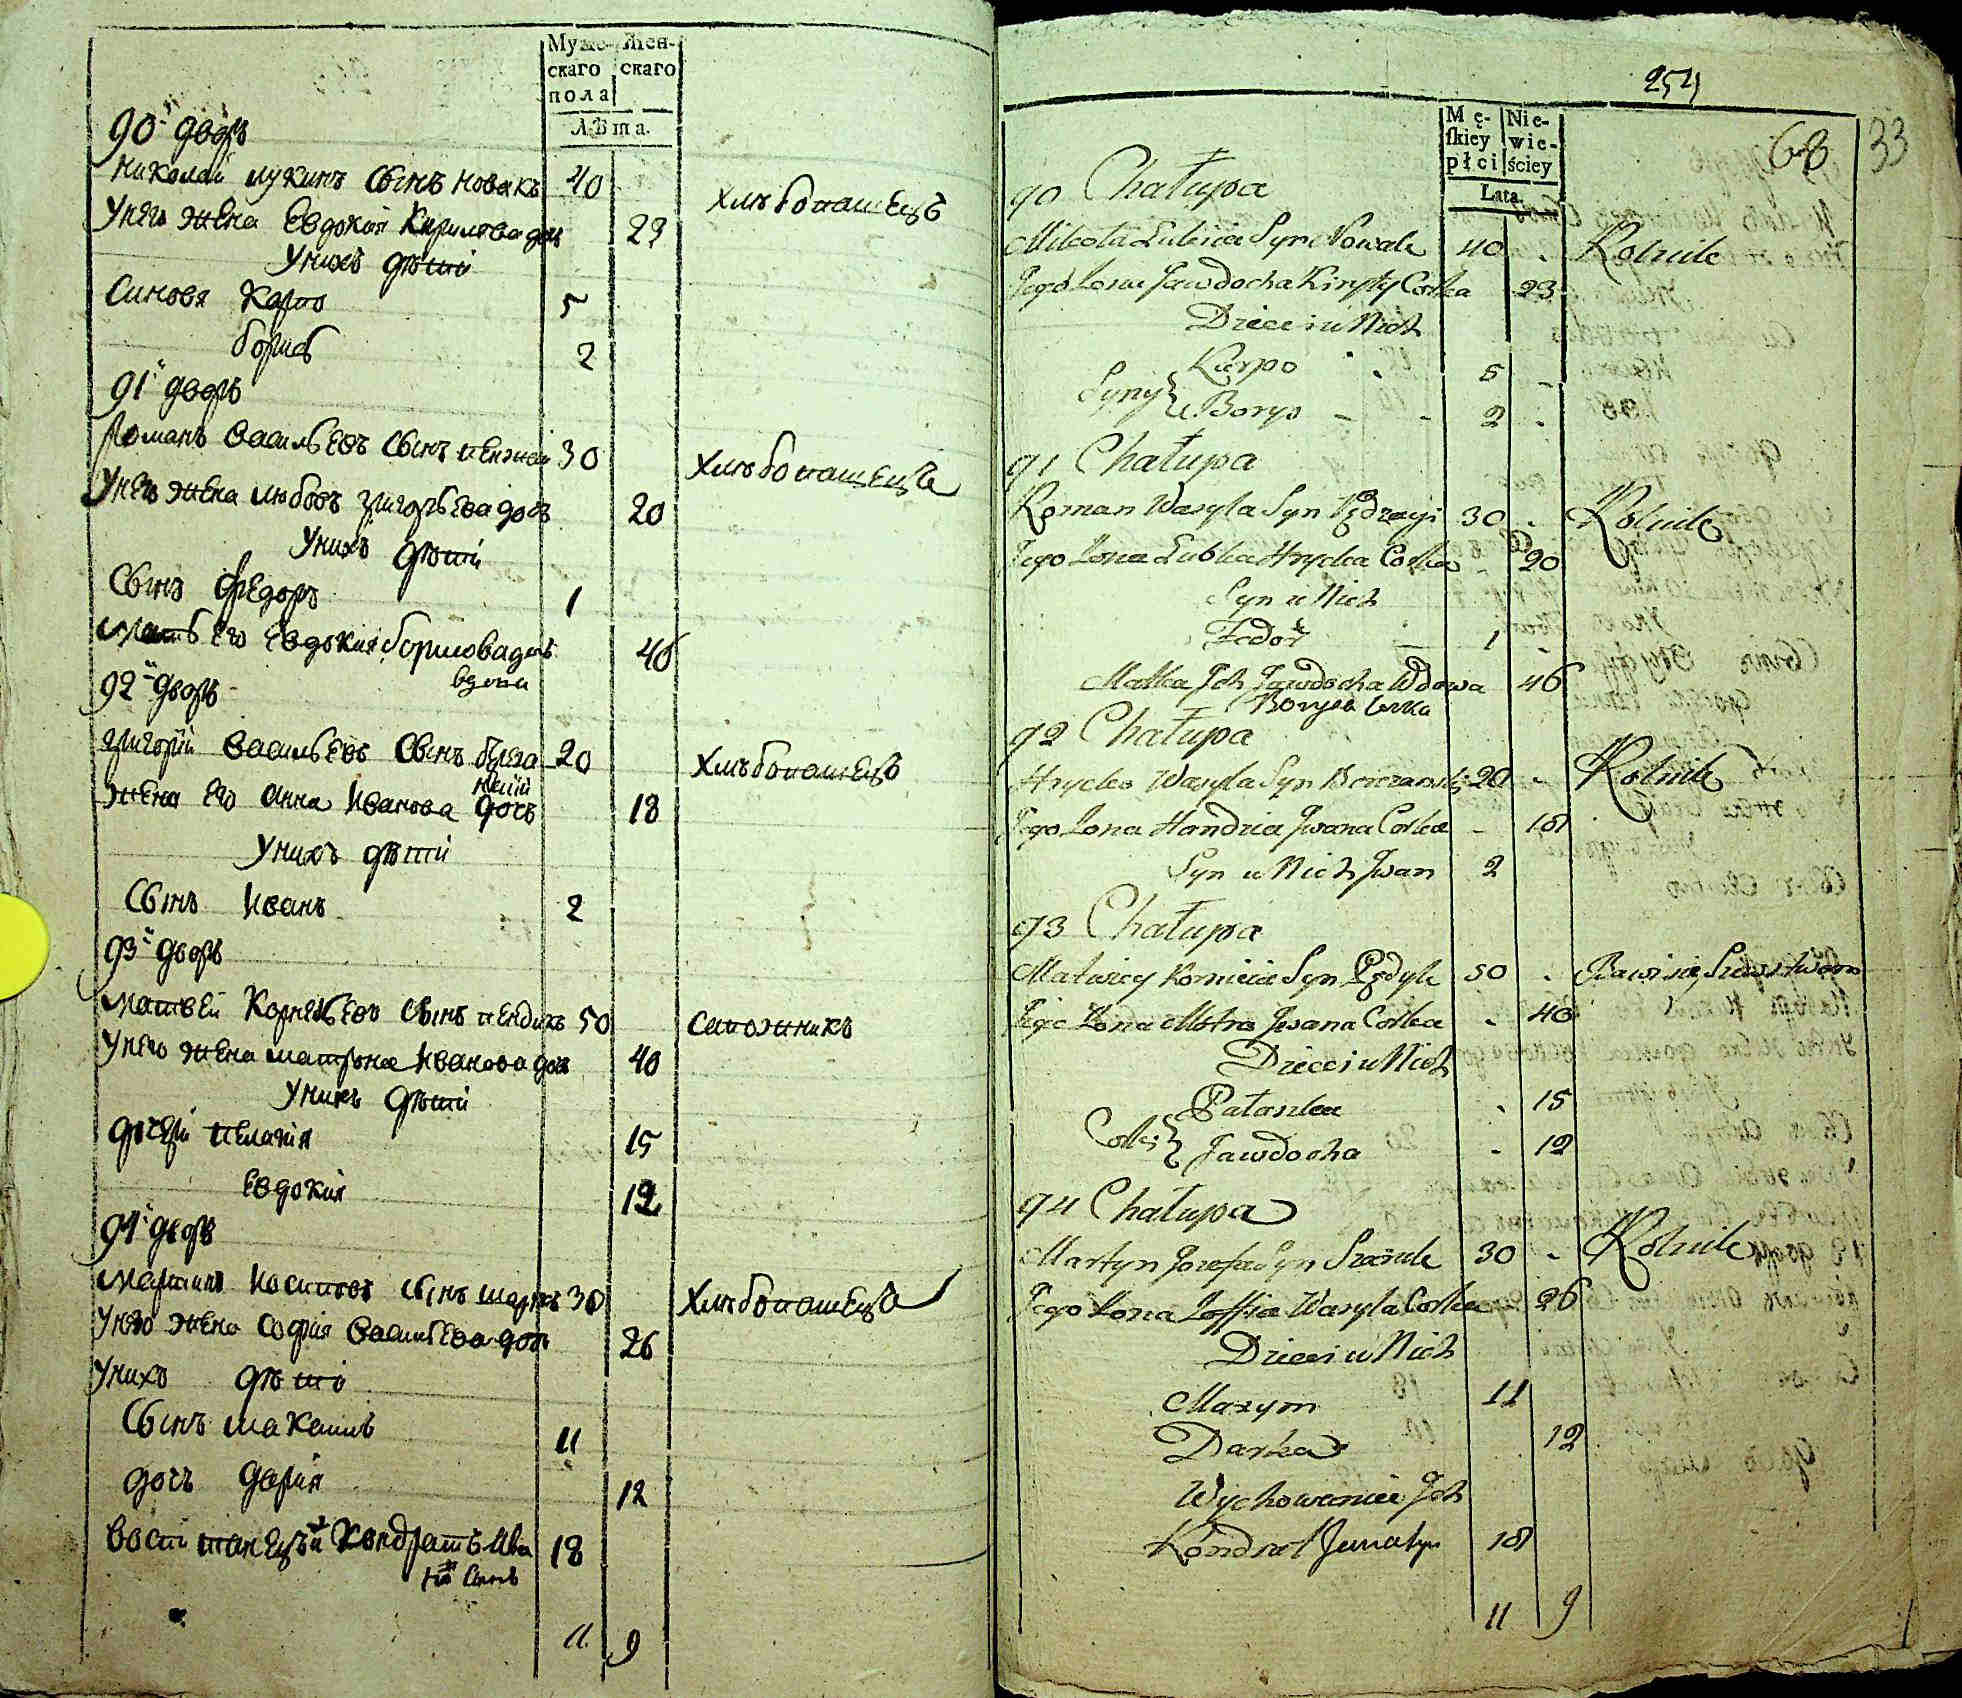 Муже- Жен-
скаго скаго
пола
Лѣта.
90й дворъ
Николай Лукинъ сынъ Новакъ 40 хлѣбопашецъ
У него жена Евдокия Кирилова дочь 23
У нихъ дѣти
Синовя Карпо 5
Борисъ 2
91й дворъ
Романъ Васильевъ сынъ 30 хлѣбопашецъ
У него жена Любовъ Григорьева дочь 20
У нихъ дѣти
Сынъ Федоръ 1
Мать его Евдокия Борисова дочь 46
вдова
92й дворъ
Григорий Васильевъ сынъ 20 хлѣбопашецъ
Жена его Анна Иванова дочь 18
У нихъ дѣти
Сынъ Иванъ 2
93й дворъ
Матвей Корнѣевъ сынъ Пендикъ 50 сапожникъ
У него жена Матрона Иванова дочь 40
У нихъ дѣти
дочери Пелагия 15
Евдокия 12
94й дворъ
Мартинъ Иосиповъ сынъ 30 хлѣбопашецъ
У него жена София Васильева дочь 26
У нихъ дѣти
Сынъ Максимъ 11
дочь Дария 12
воспитанецъ Кондратъ Ива 18
нъ сынъ
11 9
254
68 33
Mę- Nie-
skiey wie-
płci ściey
Lata.
90 Chałupa
Mikołá Łukiia Syn Nowak 40 Rolnik
Jego Żona Jawdocha Kiryły Corka 23
Dzieci u Nich
Karpo 5
Syny
Borys 2
91 Chałupa
Roman Wasyla Syn 30 Rolnik
Jego Żona Lubka Hrycka Corka 20
Syn u Nich
Fedor 1
Matka Jch Jawdocha Wdowa 46
Borysa Corka
92 Chałupa
Hrycko Wasyla Syn Berezanski 20 Rolnik
Jego Żona Handzia Jwana Corka 18
Syn u Nich Jwan 2
93 Chałupa
Matwiey Korniia Syn Pędyk 50 Bawi się Szewstwem
Jego Żona Motra Jwana Corka 40
Dzieci u Nich
Pałanka 15
Corki
Jawdocha 12
94 Chałupa
Martyn Jozefa Syn 30 Rolnik
Jego Żona Zoffia Wasyla Corka 26
Dzieci u Nich
Maxym 11
Darka 12
Wychowaniec Jch
Kondrat 18
11 9